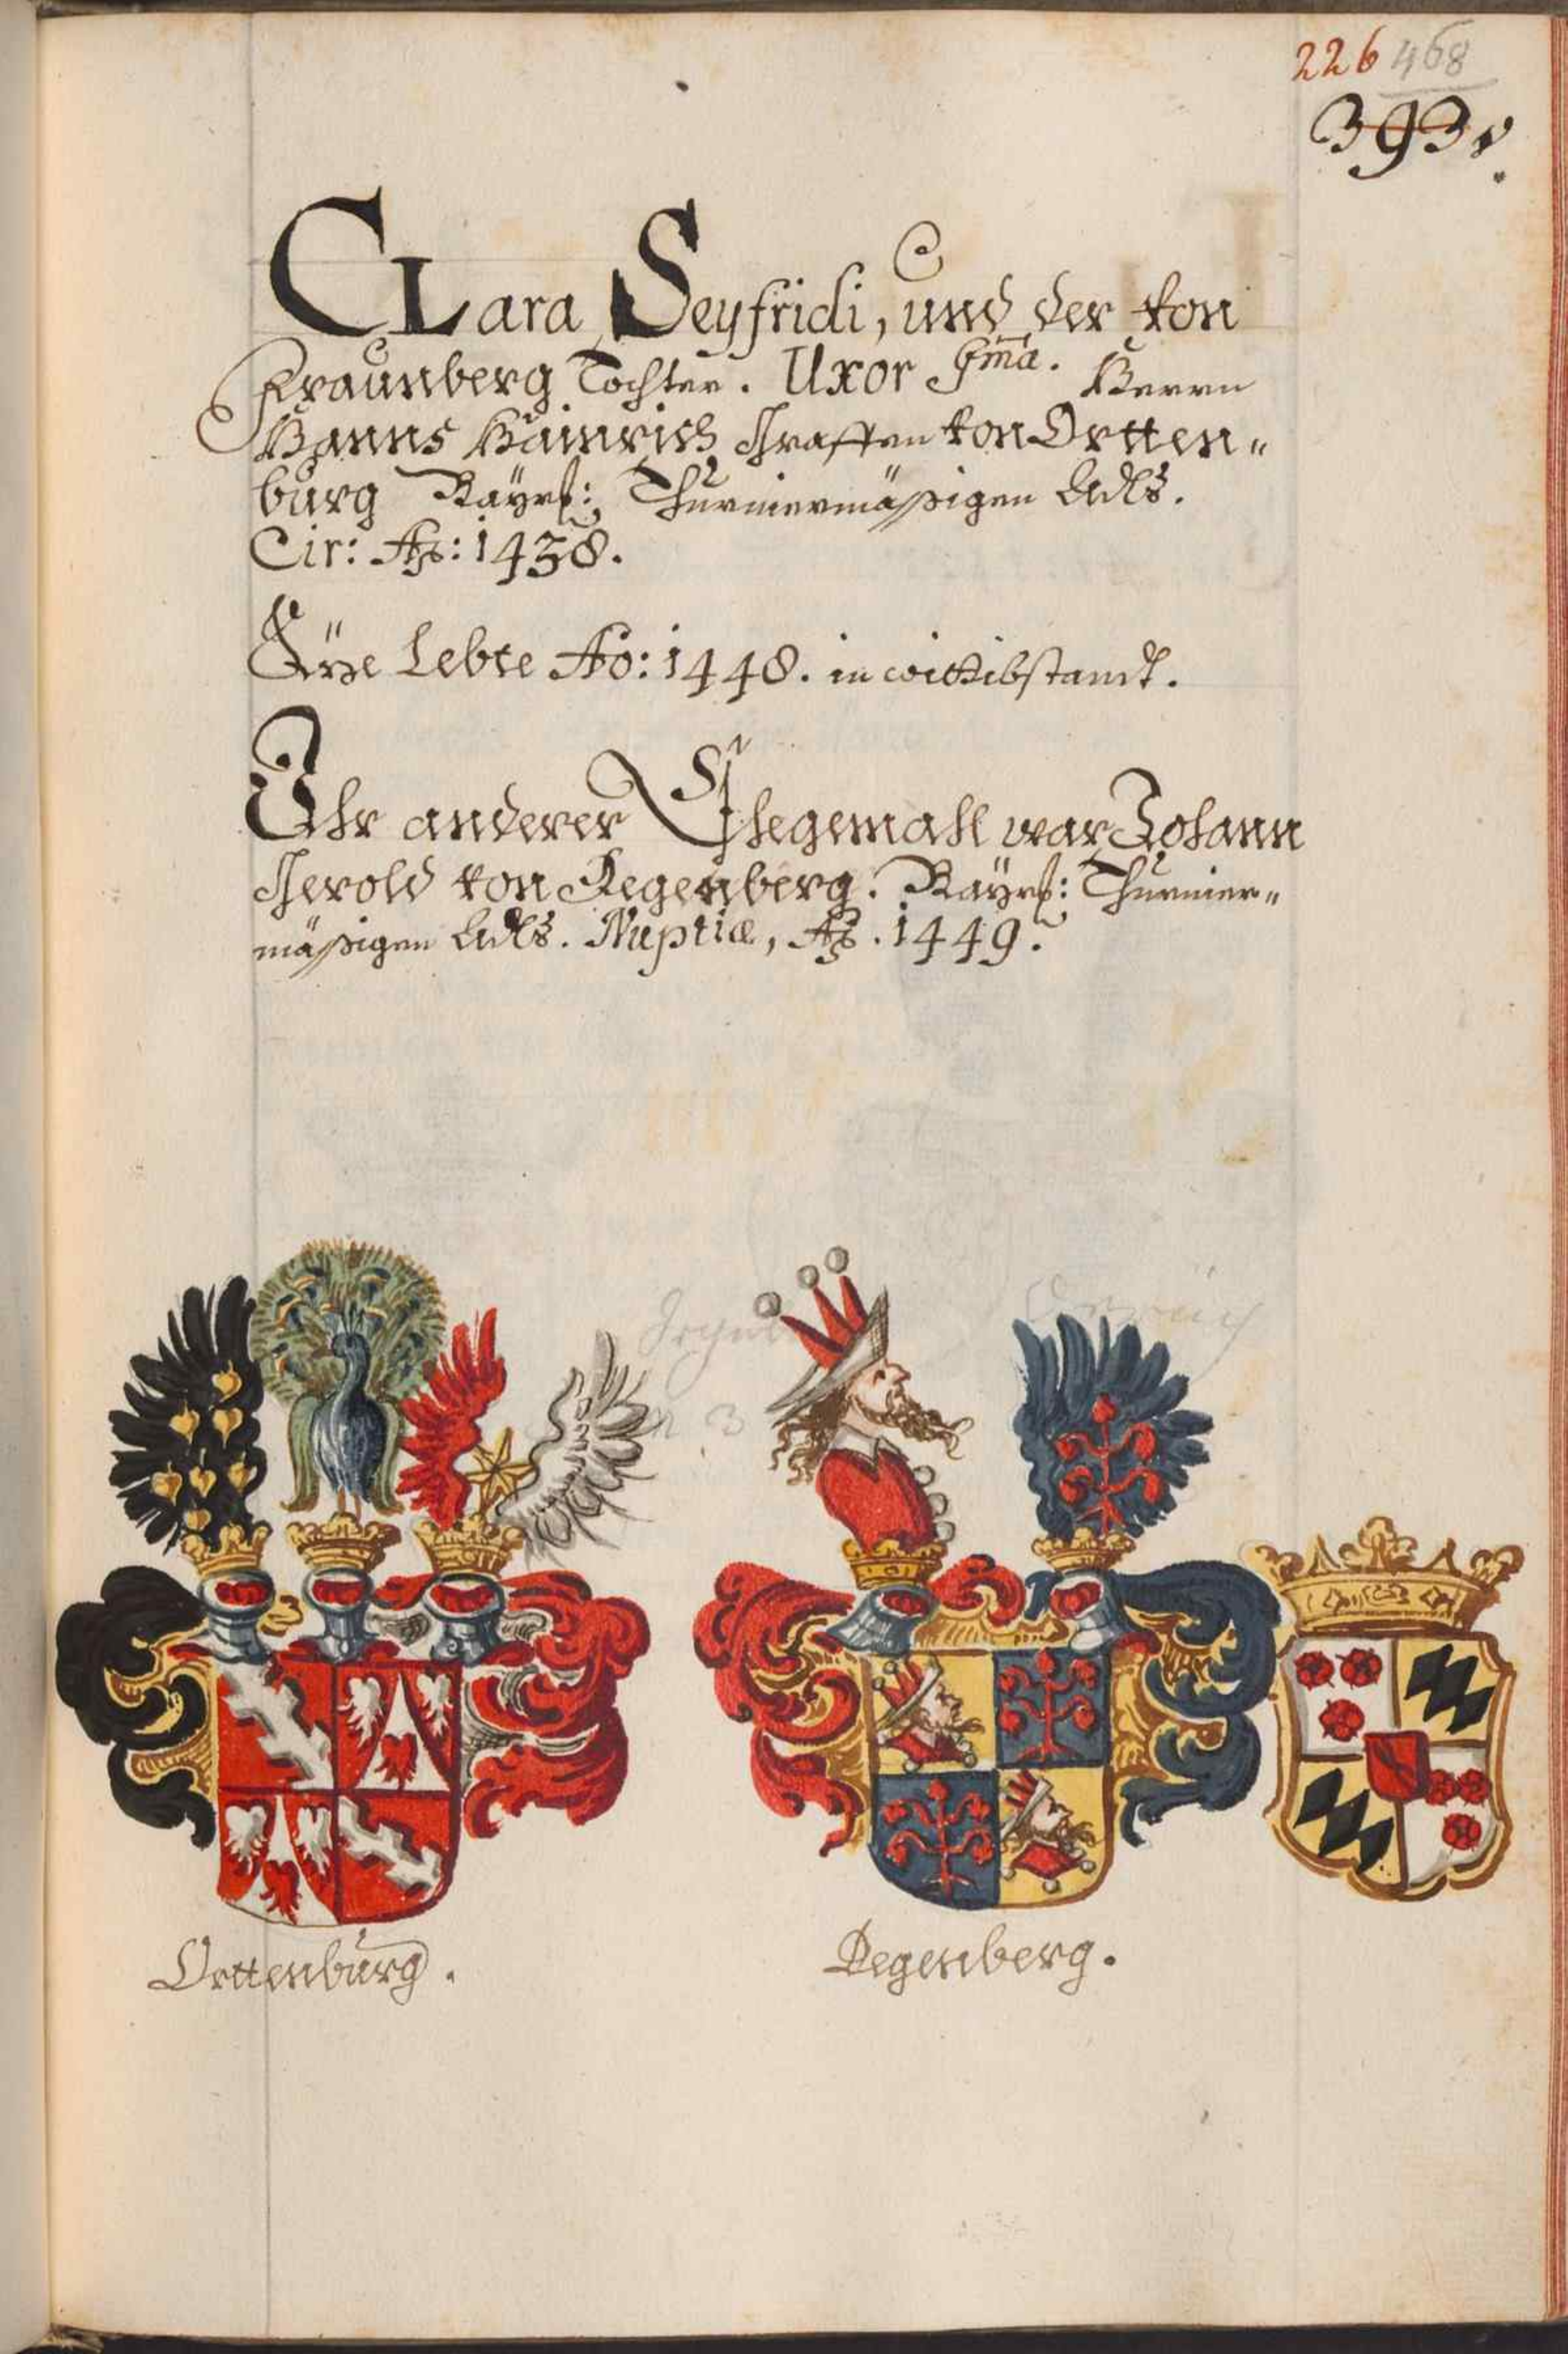 226 468
393
CLara Seyfridi, und der von
Fraunberg Tochter. Uxor Ima. Herrn
Hanns Hainrich Graffen von Ortten„
burg Bayrß: Thurniermäßigen Adls.
Cir: Ao: 1438.
Lebte Ao: 1448. in wittibstandt.
Ihr anderer Ehegemahl war Johann
Gerold von Degenberg. Bayrß: Thurnier„
mäßigen Adls. Nuptiæ, Ao. 1449.
Orttenburg.
Degenberg.